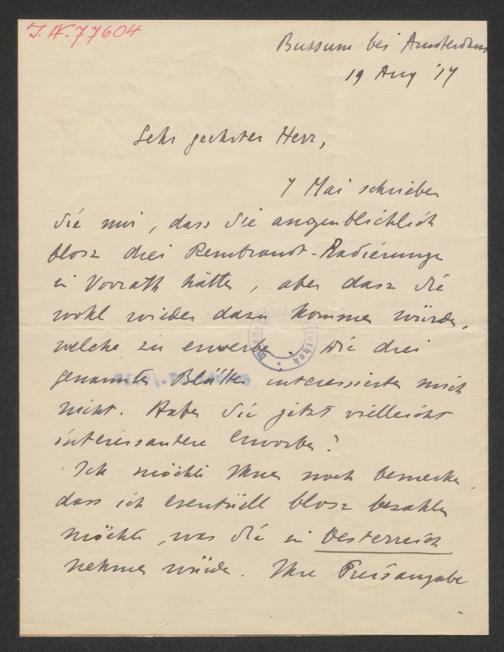 I.N. 77604
Bussum bei Amsterdam
19 Aug '17
Sehr geehrter Herr,
7 Mai schrieben
Sie mir, dass Sie augenblicklich
blosz drei Rembrandt-Radierungen
in Vorrath hätten, aber dasz Sie
wohl wieder dazu kommen würden,
welche zu erwerben. Die drei
genannten Blätter interessierten mich
nicht. Haben Sie jetzt vielleicht
interessantere Erworben?
Ich möchte Ihnen noch bemerken
dass ich eventuell blosz bezahlen
möchte, was Sie in Oesterreich
nehmen würden. Ihre Preisangabe